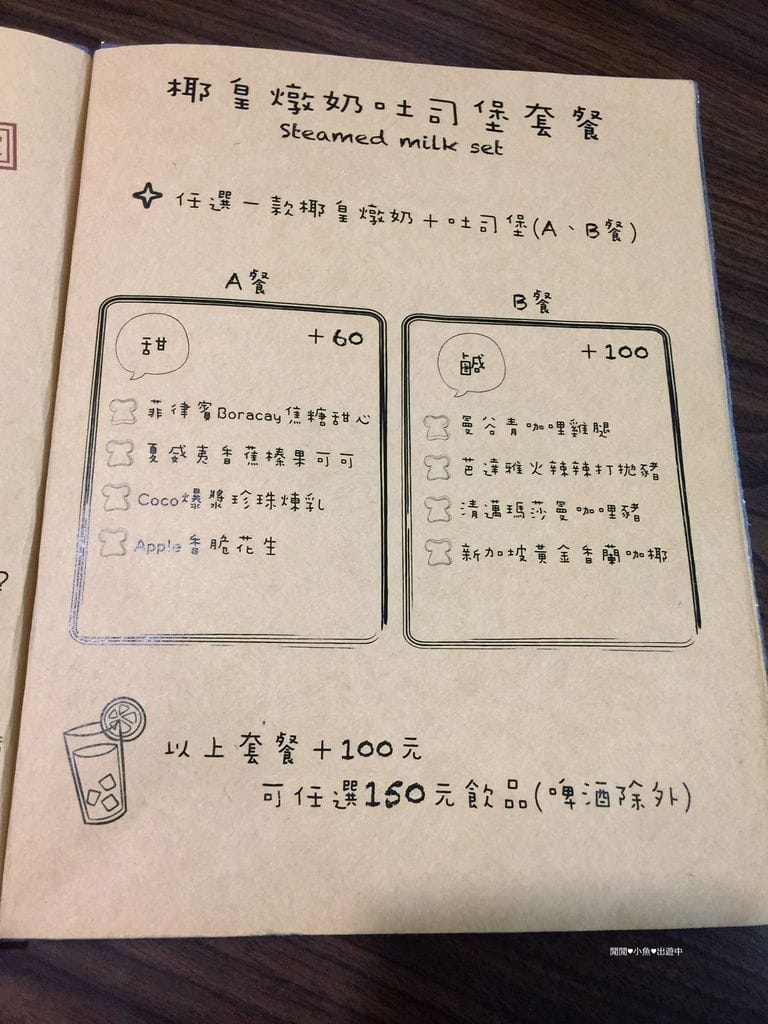 椰皇燉奶吐司堡套餐
Steamed milk set
任選一款椰皇燉奶＋吐司堡(A、B餐)
A餐
甜
+60
菲律賓Boracay焦糖甜心
夏威夷香蕉榛果可可
Coco爆漿珍珠煉乳
Apple香脆花生
B餐
鹹
+100
曼谷青咖哩雞腿
芭達雅火辣辣打拋豬
清邁瑪莎曼咖哩豬
新加坡黃金香蘭咖椰
以上套餐＋100元
可任選150元飲品(啤酒除外)
?
閒閒♥小魚♥出遊中